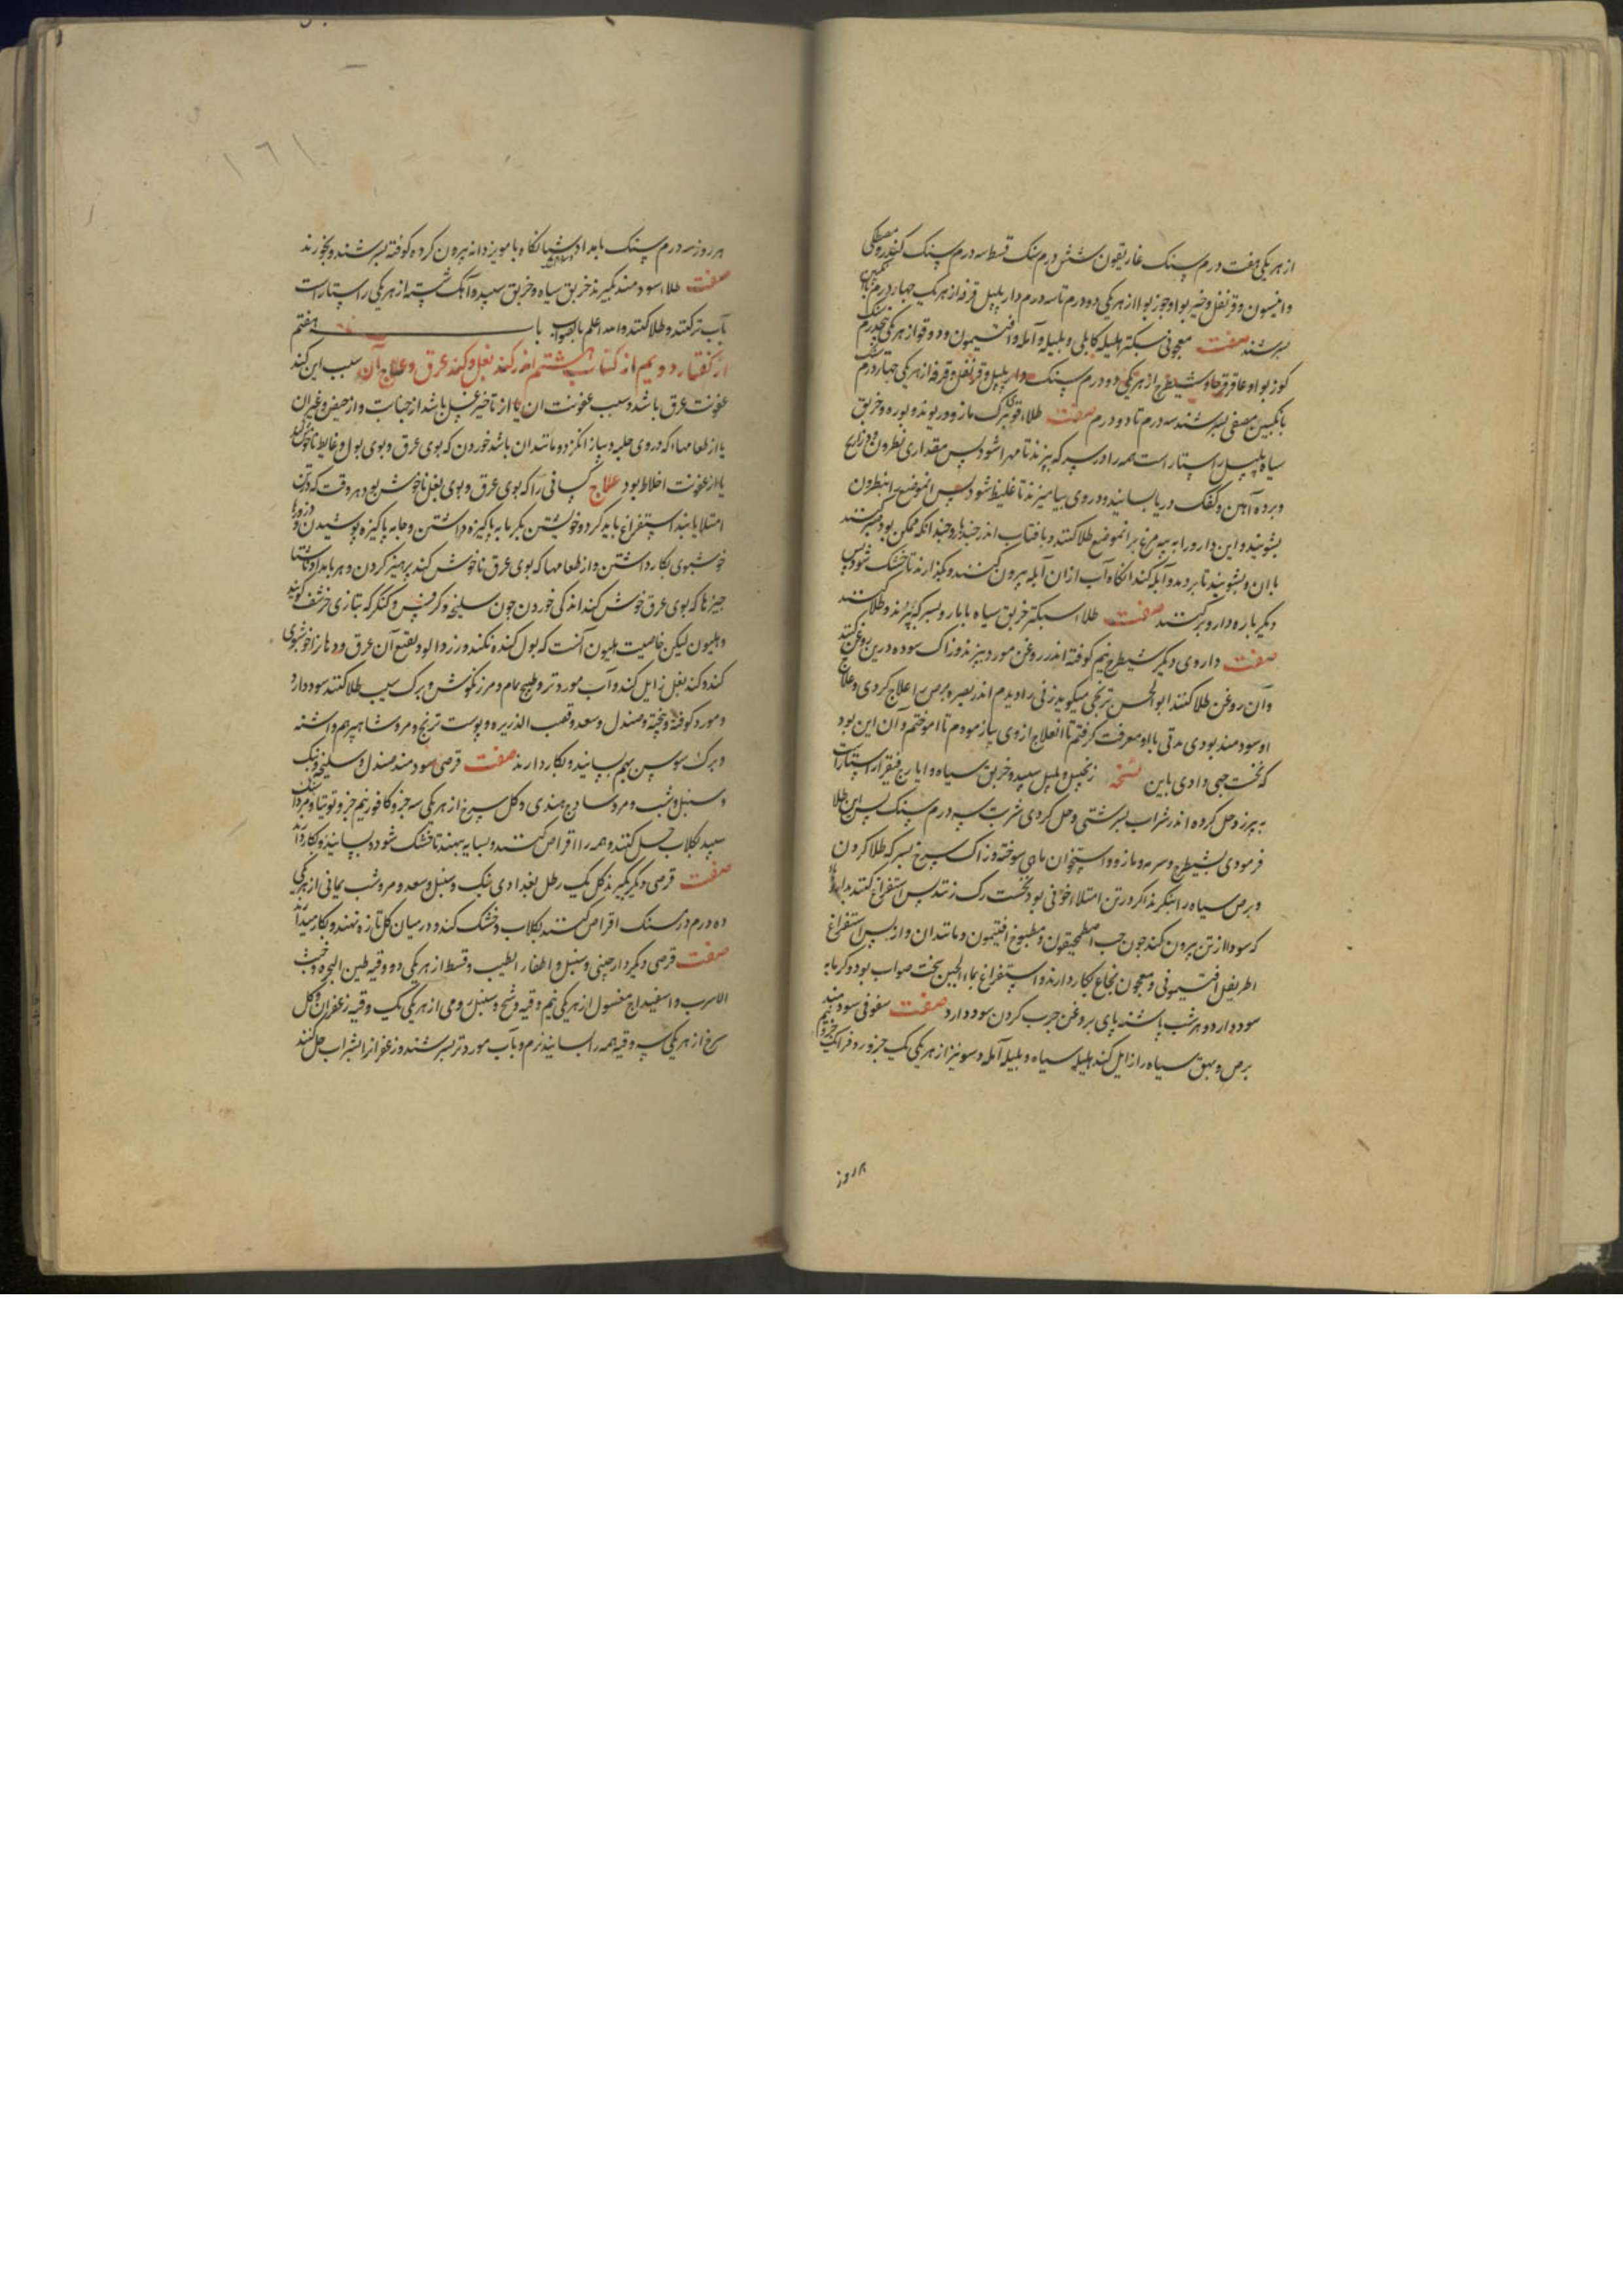 از هر یکی هفت درم سنک غاریقون شش درم سنک قسط سه درم سنک کندر و مصطکی
وانیسون و قرنفل و خیر بوا و جوز بوا از هر یکی دو درم تا سه درم دار پلپل قرفه از هر یک چهار درم
بسرشند صفت معجونی سبکتر هلیله کابلی و بلیله و آمله و افتیمون و دوقو از هر یکی پنجدرم
کوز بوا و عاقرقرحا و شیطرج از هر یکی ده درم سنک دار پلپل و قرنفل و قرفه از هر یکی چهار درم
بانکبین مصفی بسرشند سه درم تا دو درم صفت طلاء قوی برک مازو و ریوند و بوره و خربق
سیاه پلپل راستاراست همه را در سرکه بپزند تا مهرا شود پس مقداری نطرون و زراریح
و برده آهن و کفک دریا بسایند و در وی بیامیزند تا غلیظ شود پس انموضع را بنطرون
بشویند و این دارو را به پیه مرغابی بر انموضع طلا کنند و بافتاب اندر خسبد هر چندانکه ممکن بود صبر کند
با ان و بشویند تا بر دمد و آبله کند انکاه آب از ان آبله بیرون کنند و بکذارند تا خشک شود پس
دیکر باره دارو برکنند صفت طلاء سبکتر خربق سیاه بابار و بسرکه بپزند و طلا کنند
صفت داروی دیکر شیطرج نیم کوفته اندر روغن مورد بپزند و زاک سوده درین روغن کنند
و آن روغن طلا کنند ابو الحسن ترنجی میکوید زنی را دیدم اندر بصره برص را علاج کردی و علاج
او سودمند بودی مدتی با او معرفت کرفتم تا انعلاج از وی بیازمودم تا اموختم و ان این بود
که نخست حبی دادی باین نسخه زنجبیل و پلپل سپید و خربق سیاه و ایارج فیقرا راستاراست
به پرز و حل کرده اندر شراب بسرشتی و حل کردی شربت سه درم سنک پس این طلا
فرمودی شیطرج و سرمه و مازو و استخوان ماهی سوخته و زاک سرخ بسرکه طلا کردن
و برص سیاه را بنکرند اکر در تن امتلاء خونی بود نخست رک زنند پس استفراغ کنند بداروها
که سودا از تن بیرون کند چون حب اصطمخیقون و مطبوخ افتیمون و مانند ان و از پس استفراغ
اطریفل افتیمونی و معجون نجاح بکار دارند و استفراغ بماء الجبن سخت صواب بود و کرمابه
سود دارد و هر شب پاشنه پای بروغن چرب کردن سود دارد صفت سفوفی سودمند
برص و بهق سیاه را زایل کند هلیله سیاه و بلیله آمله و سونیز از هر یکی یک جزو
هر روز
۱۶۱
هر روز سه درم سنک بامداد و شبانکاه با مویز دانه بیرون کرده کوفته بسرشند و بخورند
صفت طلاء سودمند بکیرند خربق سیاه و خربق سپید و آهک نشسته از هر یکی راستاراست
بآب تر کنند و طلا کنند و الله اعلم بالصواب باب هفتم
از کفتار دویم از کتاب هشتم اندر کند بغل و کند عرق و علاج آن سبب این کند
عفونت عرق باشد و سبب عفونت ان یا از تاخیر غسل باشد از جنابت و از حیض و غیر ان
یا از طعامهاء که در وی حلبه و پیاز و انکژد و مانند ان باشد خوردن که بوی عرق و بوی بول و غایط ناخوش کند
یا از عفونت اخلاط بود علاج کسانی را که بوی عرق و بوی بغل ناخوش بود هر وقت که در تن
امتلا یابند استفراغ باید کرد و خویشتن بکرمابه پاکیزه داشتن و جامه پاکیزه پوشیدن و ذرورها
خوشبوی بکار داشتن و از طعامها که بوی عرق ناخوش کند پرهیز کردن و هر بامداد ناشتا
چیزها که بوی عرق خوش کند اندکی خوردن چون سلیخه و کرفس و کنکر که بتازی حرشف کویند
و هلیون لیکن خاصیت هلیون آنست که بول کنده نکند و زردالو و نقیع آن عرق و دهان را خوشبوی
کند و کند بغل زایل کند و آب مورد تر و طبیخ نمام و مرزنکوش و برک سیب طلا کنند سود دارد
و مورد کوفته و پخته و صندل و سعد و قصب الذریره و پوست ترنج و مرو شاهسپرم و اشنه
و برک سوسن بهم بسایند و بکار دارند صفت قرصی سودمند صندل و سلیخه و نبک
و سنبل و شب و مر و ساذج هندی و کل سرخ از هر یکی سه جزو کافور نیم جزو توتیا و مرداسنک
سپید بکلاب حل کنند و همه را اقراص کنند و بسایه بنهند تا خشک شود و بسایند و بکار دارند
صفت قرصی دیکر بکیرند کل یک رطل بغدادی نبک و سنبل و سعد و مر و شب یمانی از هر یکی
ده درم درمسنک اقراص کنند بکلاب و خشک کنند و در میان کل تازه نهند و بکار میدارند
صفت قرصی دیکر دارچینی و سنبل و اظفار الطیب و قسط از هر یکی دو وقیه طین البحره و خبث
الاسرب و اسفیداج مغسول از هر یکی نیم وقیه و شیح و سنبل رومی از هر یکی یک وقیه زعفران و کل
سرخ از هر یکی سه وقیه همه را بسایند نرم و بآب مورد تر بسرشند و زعفران را بشراب حل کنند